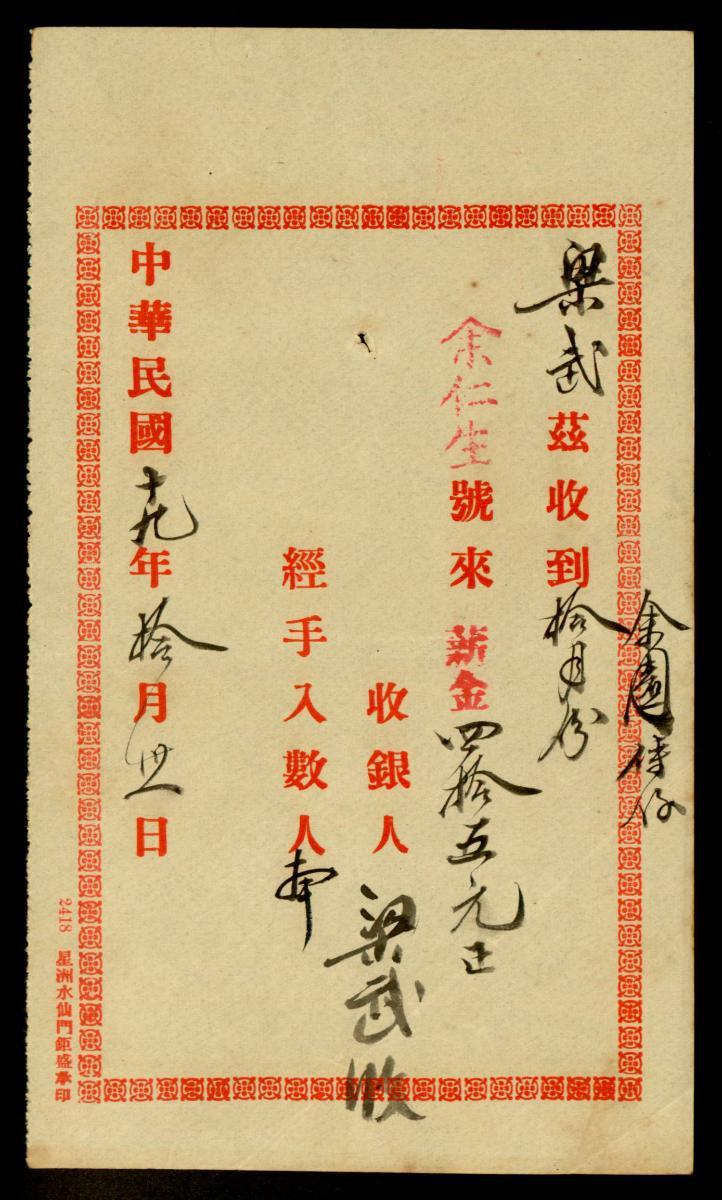 余園侍仔
梁武茲收到拾月份
余仁生號來薪金四拾五元正
收銀人梁武收
經手入數人
中華民國十九年拾月卅一日
2418 星洲水仙門鉅盛承印